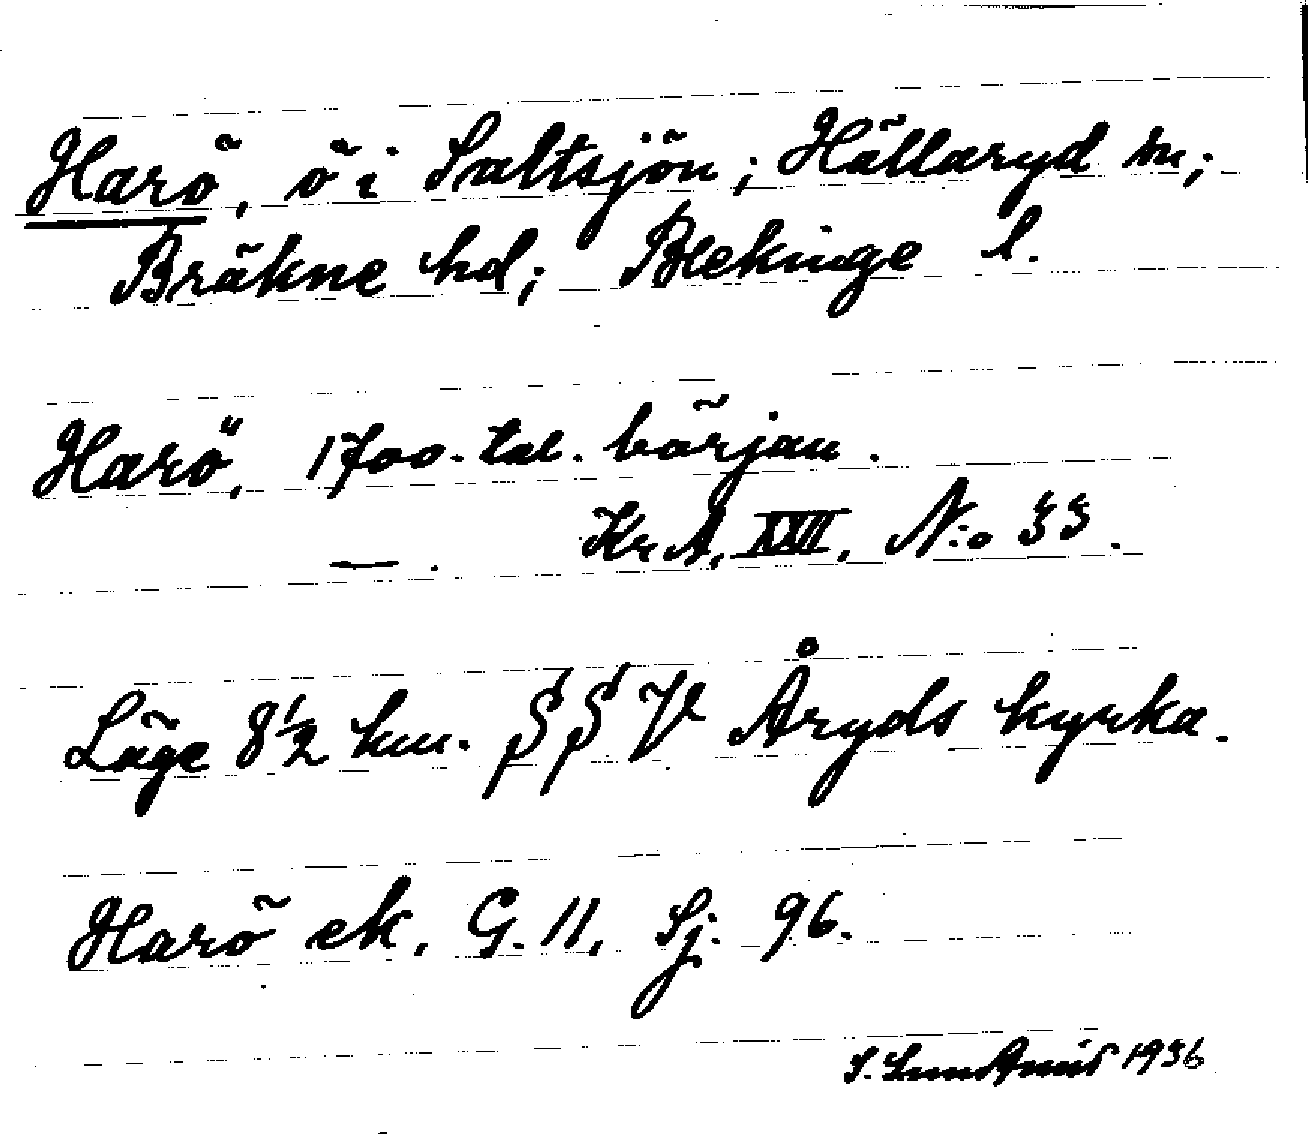 Harö, ö i Saltsjön; Hällaryd sn;
Bräkne hd; Blekinge l.
Harö, 1700-tal. början.
— . Kr A, XXII, N:o 33.
Läge 8 1/2 km. SSV Åryds kyrka.
Harö ek. G. 11, Sj. 96.
S. 1936